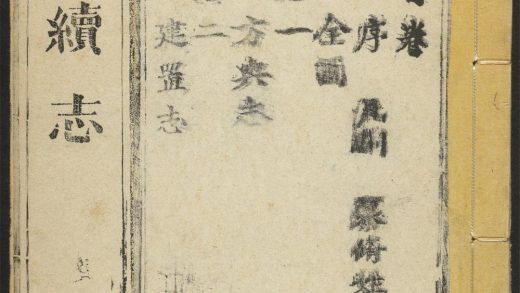 卷
序 凡例 纂修姓
全圖
一
方輿志
二
建置志
續志